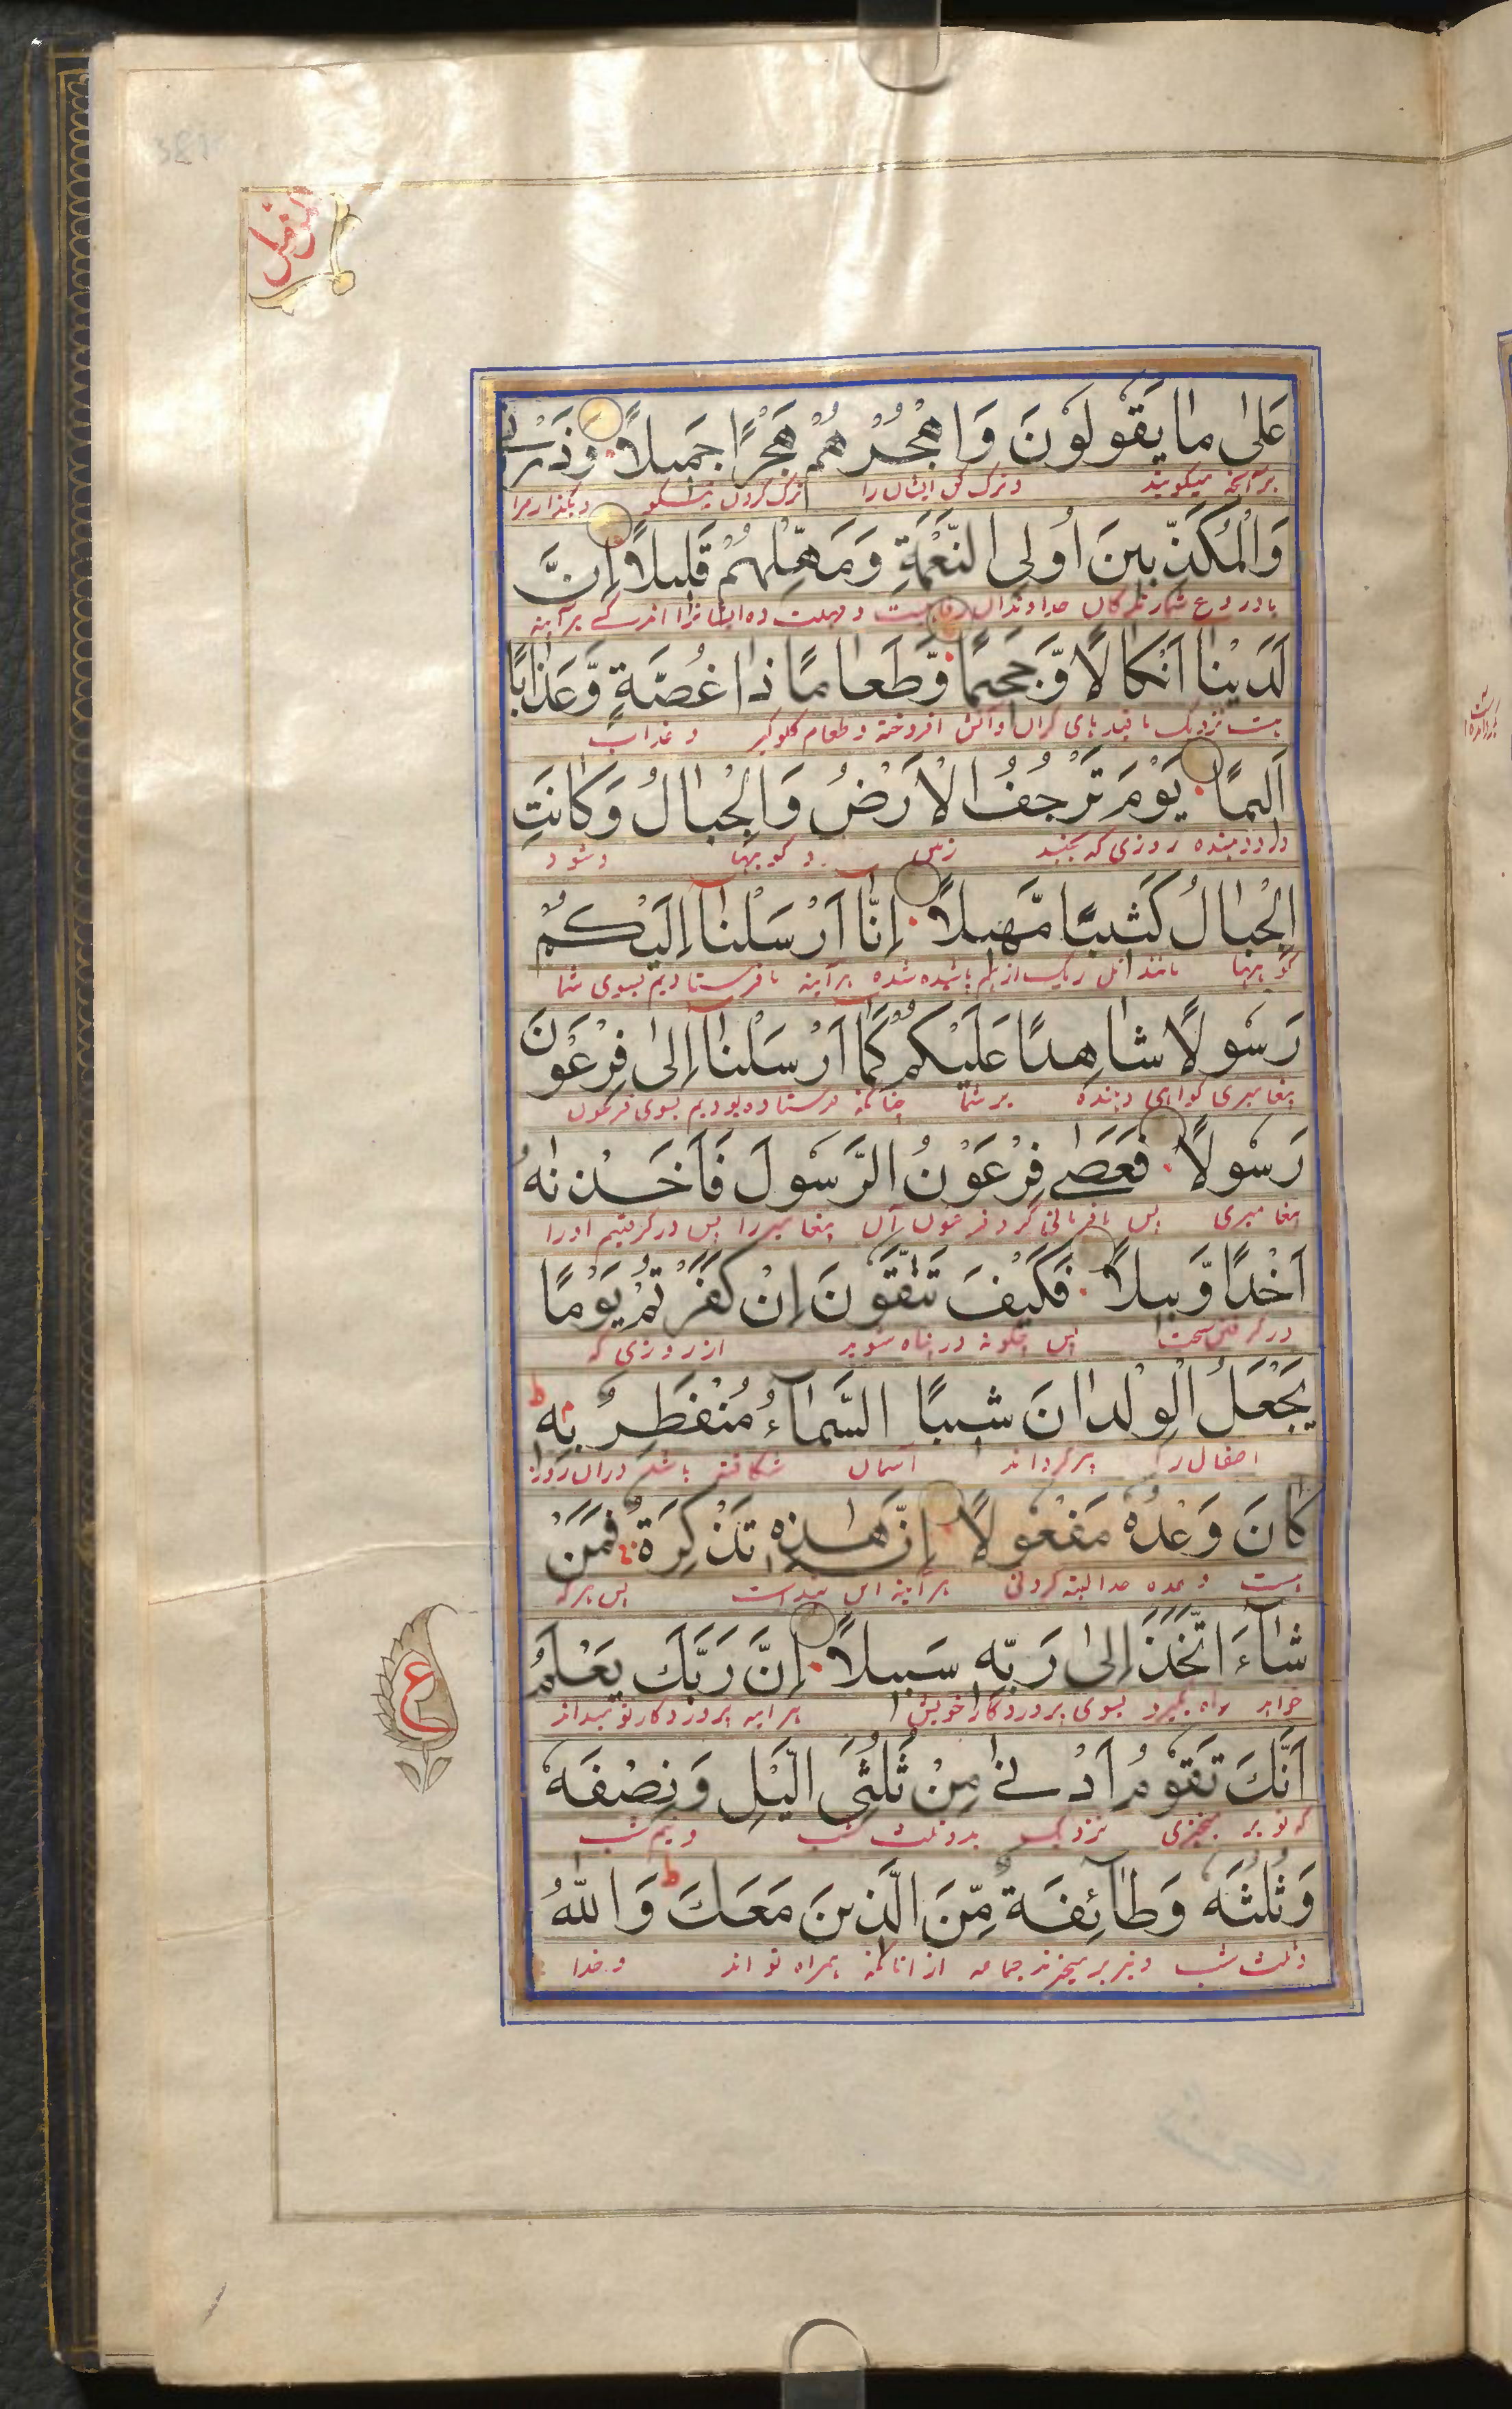 المزمل
عَلىٰ مٰا يَقُولُونَ وَاهْجُرْهُمْ هَجْرًا جَمِيلًا وَذَرْنِي
برآنچه میگویند و ترک کن ایشان را ترک کردن نیکو و بگذار مرا
وَالْمُكَذِّبِينَ اُولِي النَّعْمَةِ وَمَهِّلْهُمْ قَلِيلًا اِنَّ
با دروغ شمارندگان خداوندان رفاهیت و مهلت ده ایشانرا اندکے برآینه
لَدَيْنٰا اَنْكٰالًا وَّجَحِيمًا وَّطَعٰامًا ذٰا غُصَّةٍ وَّعَذٰابًا
هست نزدیک ما قیدهای گران و آتش افروخته و طعام گلوگیر و عذاب
اَلِيمًا يَوْمَ تَرْجُفُ الْاَرْضُ وَالْجِبٰالُ وَكٰانَتِ
درد دهنده روزی که بجنبد زمین و کوهها و شود
الْجِبٰالُ كَثِيبًا مَّهِيلًا اِنّٰٓا اَرْسَلْنٰٓا اِلَيْكُمْ
کوهها مانند تل ریگ از هم پاشیده شده برآینه ما فرستادیم بسوی شما
رَسُولًا شٰاهِدًا عَلَيْكُمْ كَمٰٓا اَرْسَلْنٰٓا اِلىٰ فِرْعَوْنَ
پیغامبری گواهی دهنده بر شما چنانکه فرستاده بودیم بسوی فرعون
رَسُولًا فَعَصٰے فِرْعَوْنُ الرَّسُولَ فَاَخَذْنٰهُ
پیغامبری پس نافرمانی کرد فرعون آن پیغامبر را پس درگرفتیم او را
اَخْذًا وَّبِيلًا فَكَيْفَ تَتَّقُونَ اِنْ كَفَرْتُمْ يَوْمًا
درگرفتن سخت پس چگونه در پناه شوید از روزی که
يَجْعَلُ الْوِلْدٰانَ شِيبًا السَّمٰٓاءُ مُنْفَطِرٌ بِهٖ ط
پیر گرداند آسمان شکافته باشد در آن روز
كٰانَ وَعْدُهُ مَفْعُولًا اِنَّ هٰذِهٖ تَذْكِرَةٌ فَمَنْ
هست وعده خدا البته کردنی برآینه این پند است پس هرکه
شٰٓاءَ اتَّخَذَ اِلىٰ رَبِّهٖ سَبِيلًا اِنَّ رَبَّكَ يَعْلَمُ
خواهد راه بگیرد بسوی پروردگار خویش برآینه پروردگار تو میداند
ع
اَنَّكَ تَقُومُ اَدْنٰے مِنْ ثُلُثَيِ الَّيْلِ وَنِصْفَهُ
که تو بر میخیزی نزدیک بدو ثلث شب و نیم شب
وَثُلُثَهُ وَطٰٓائِفَةٌ مِّنَ الَّذِينَ مَعَكَ ط وَاللّٰهُ
و ثلث شب و نیز برمیخیزند جماعه از آنانکه همراه تو اند و خدا